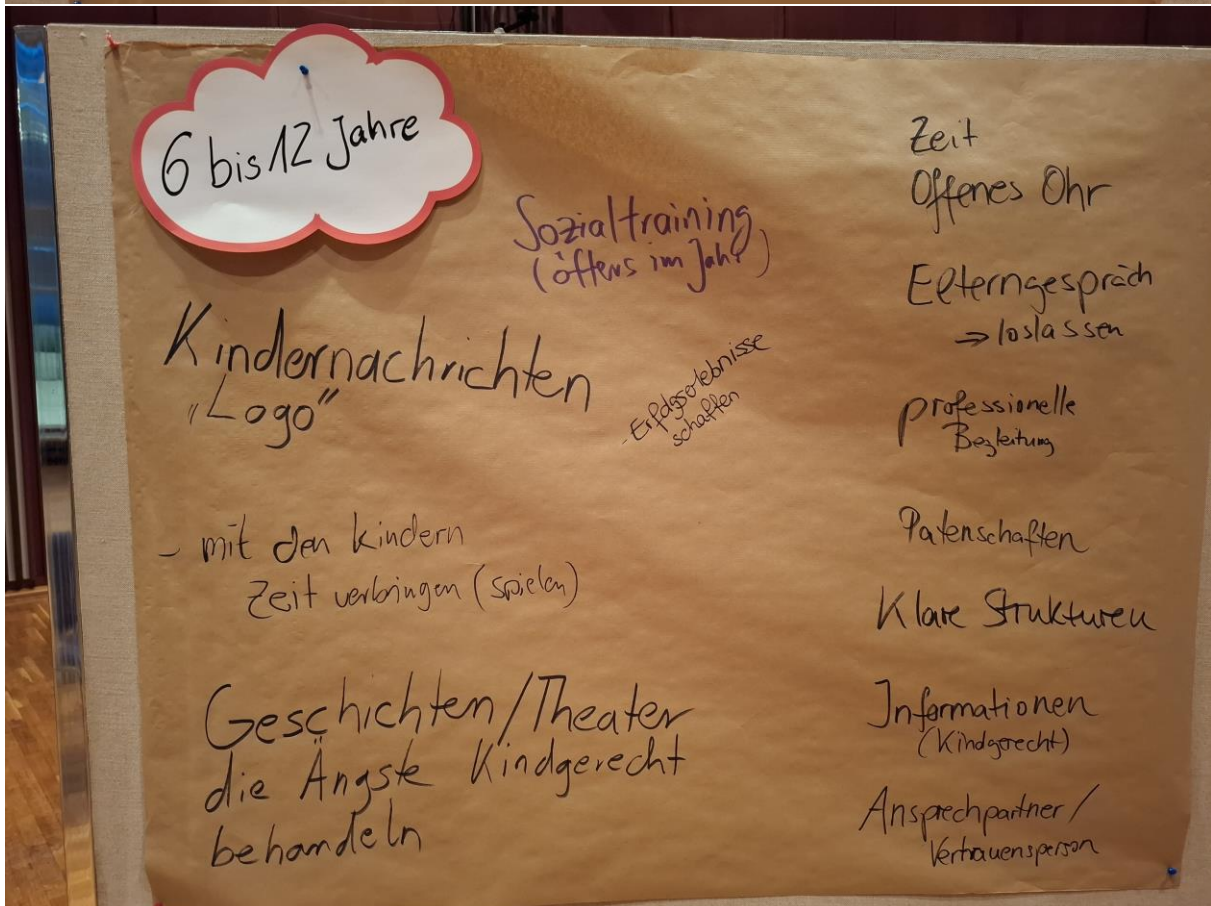 6 bis 12 Jahre
Sozialtraining
(öfters im Jahr)
Kindernachrichten
„Logo“
- Erfolgserlebnisse
schaffen
- mit den Kindern
Zeit verbringen (spielen)
Geschichten/Theater
die Ängste Kindgerecht
behandeln
Zeit
Offenes Ohr
Elterngespräch
→ loslassen
professionelle
Begleitung
Patenschaften
Klare Strukturen
Informationen
(Kindgerecht)
Ansprechpartner/
Vertrauensperson